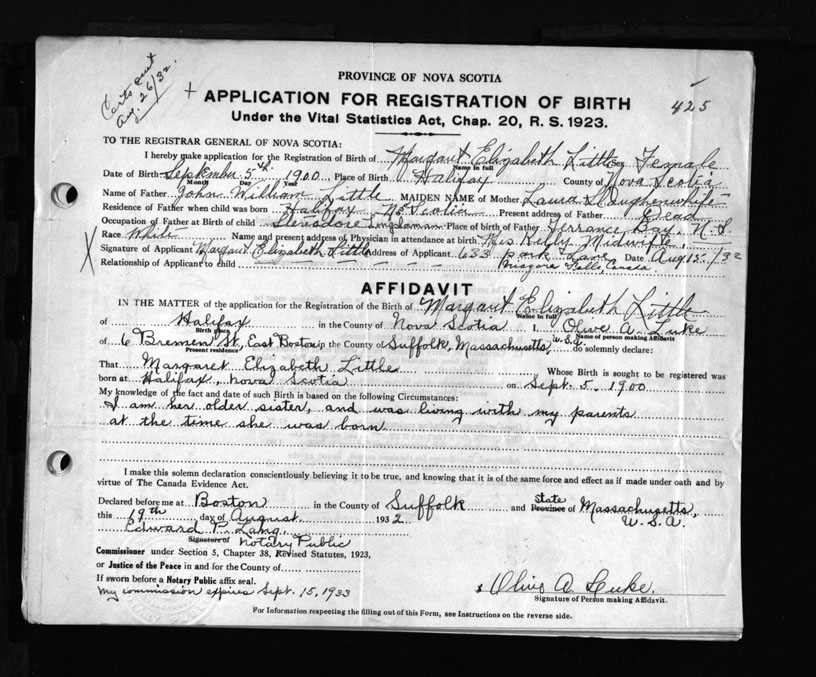 Certs sent
Aug. 26/32.
PROVINCE OF NOVA SCOTIA
+ APPLICATION FOR REGISTRATION OF BIRTH
425
Under the Vital Statistics Act, Chap. 20, R. S. 1923.
TO THE REGISTRAR GENERAL OF NOVA SCOTIA:
I hereby make application for the Registration of Birth of Margaret Elizabeth Little Female
Name in full
Date of Birth September 5th 1900 Place of Birth Halifax County of Nova Scotia
Month Day Year
Name of Father John William Little MAIDEN NAME of Mother Laura
Residence of Father when child was born Halifax N. Scotia Present address of Father Dead
Occupation of Father at Birth of child Place of Birth of Father Terrance Bay, N. S.
Race White Name and present address of Physician in attendance at birth Mrs Kelly Midwife
X Signature of Applicant Margaret Elizabeth Little Address of Applicant 633 park Lawn Date Aug 15/32
Relationship of Applicant to child Niagara Falls, Canada
AFFIDAVIT
IN THE MATTER of the application for the Registration of the Birth of Margaret Elizabeth Little
Name in full
of Halifax in the County of Nova Scotia I, Olive A. Luke
Birth place Name of person making Affidavit
of 6 Bremen St, East Boston in the County of Suffolk, Massachusetts, U.S.A. do solemnly declare:
Present residence
That Margaret Elizabeth Little Whose Birth is sought to be registered was
born at Halifax, Nova Scotia on Sept. 5, 1900
My knowledge of the fact and date of such Birth is based on the following Circumstances:
I am her older sister, and was living with my parents
at the time she was born
I make this solemn declaration conscientiously believing it to be true, and knowing that it is of the same force and effect as if made under oath and by
virtue of The Canada Evidence Act.
Declared before me at Boston in the County of Suffolk and State Province of Massachusetts,
this 19th day of August 1932 U.S.A.
Edward P. Lang
Signature of Notary Public
Commissioner under Section 5, Chapter 38, Revised Statutes, 1923,
or Justice of the Peace in and for the County of
If sworn before a Notary Public affix seal.
My commission expires Sept. 15, 1933
x Olive A. Luke.
Signature of Person making Affidavit.
For Information respecting the filling out of this Form, see Instructions on the reverse side.